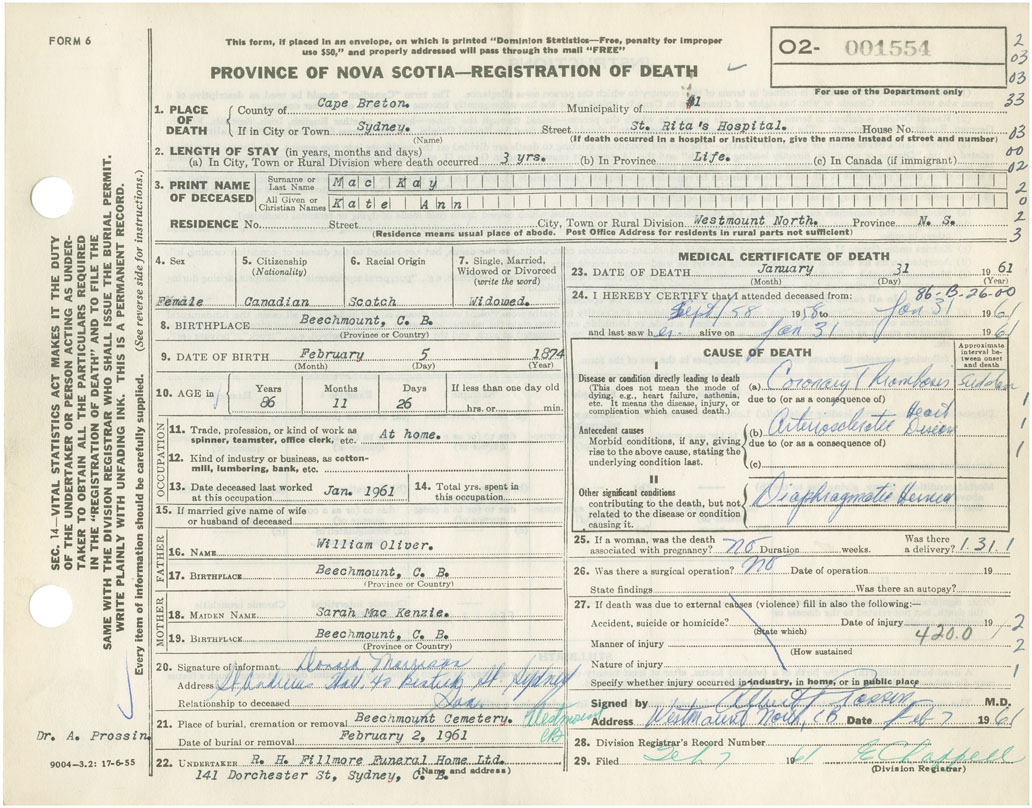 FORM 6
This form, if placed in an envelope, on which is printed "Dominion Statistics—Free, penalty for improper
use $50," and properly addressed will pass through the mail "FREE"
PROVINCE OF NOVA SCOTIA—REGISTRATION OF DEATH
02- 001554
For use of the Department only
2
03
03
33
03
00
02
2
0
2
3
1. PLACE OF DEATH
County of Cape Breton. Municipality of
If in City or Town Sydney. Street St. Rita's Hospital. House No.
(Name) (If death occurred in a hospital or institution, give the name instead of street and number)
2. LENGTH OF STAY (in years, months and days)
(a) In City, Town or Rural Division where death occurred 3 yrs. (b) In Province Life. (c) In Canada (if immigrant)
3. PRINT NAME OF DECEASED
Surname or Last Name Mac Kay
All Given or Christian Names Kate Ann
RESIDENCE No. Street City, Town or Rural Division Westmount North. Province N. S.
(Residence means usual place of abode. Post Office Address for residents in rural parts not sufficient)
4. Sex
Female
5. Citizenship
(Nationality)
Canadian
6. Racial Origin
Scotch
7. Single, Married,
Widowed or Divorced
(write the word)
Widowed.
8. BIRTHPLACE Beechmount, C. B.
(Province or Country)
9. DATE OF BIRTH February 5 1874
(Month) (Day) (Year)
10. AGE in
Years Months Days If less than one day old
86 11 26 hrs. or min.
OCCUPATION
11. Trade, profession, or kind of work as
spinner, teamster, office clerk, etc. At home.
12. Kind of industry or business, as cotton-
mill, lumbering, bank, etc.
13. Date deceased last worked
at this occupation Jan. 1961
14. Total yrs. spent in
this occupation
15. If married give name of wife
or husband of deceased
FATHER
16. NAME William Oliver.
17. BIRTHPLACE Beechmount, C. B.
(Province or Country)
MOTHER
18. MAIDEN NAME Sarah Mac Kenzie.
19. BIRTHPLACE Beechmount, C. B.
(Province or Country)
20. Signature of informant Donald Morrison
Address St. Andrews Hall, 40 St. Sydney
Relationship to deceased Son.
21. Place of burial, cremation or removal Beechmount Cemetery. Westmount
CB
Date of burial or removal February 2, 1961
22. UNDERTAKER R. H. Fillmore Funeral Home Ltd.
141 Dorchester St, Sydney, C. B.
(Name and address)
MEDICAL CERTIFICATE OF DEATH
23. DATE OF DEATH January 31 1961
(Month) (Day) (Year)
86-B-26-00
24. I HEREBY CERTIFY that I attended deceased from:
Sept/58 1958 to Jan 31 1961
and last saw her alive on Jan 31 1961
CAUSE OF DEATH
Approximate
interval be-
tween onset
and death
I
Disease or condition directly leading to death
(This does not mean the mode of
dying, e.g., heart failure, asthenia,
etc. It means the disease, injury, or
complication which caused death.)
(a) Coronary Thrombosis Sudden
due to (or as a consequence of)
Antecedent causes
Morbid conditions, if any, giving
rise to the above cause, stating the
underlying condition last.
(b) Arteriosclerotic Heart Disease
due to (or as a consequence of)
(c)
II
Other significant conditions
contributing to the death, but not
related to the disease or condition
causing it.
Diaphragmatic Hernia
1
1
1
25. If a woman, was the death
associated with pregnancy? no Duration weeks. Was there
a delivery? 1.31.1
26. Was there a surgical operation? no Date of operation 19
State findings Was there an autopsy?
27. If death was due to external causes (violence) fill in also the following:—
Accident, suicide or homicide? Date of injury 19
(State which) 420.0
Manner of injury
(How sustained
Nature of injury
Specify whether injury occurred in industry, in home, or in public place
2
2
1
Signed by Albert Prossin M.D.
Address Westmount North, CB Date Feb 7 1961
28. Division Registrar's Record Number
29. Filed Feb 7 1961 E Chappell
(Division Registrar)
SEC. 14—VITAL STATISTICS ACT MAKES IT THE DUTY
OF THE UNDERTAKER OR PERSON ACTING AS UNDER-
TAKER TO OBTAIN ALL THE PARTICULARS REQUIRED
IN THE "REGISTRATION OF DEATH" AND TO FILE THE
SAME WITH THE DIVISION REGISTRAR WHO SHALL ISSUE THE BURIAL PERMIT.
WRITE PLAINLY WITH UNFADING INK. THIS IS A PERMANENT RECORD.
Every item of information should be carefully supplied. (See reverse side for instructions.)
Dr. A. Prossin
9004—3.2: 17-6-55